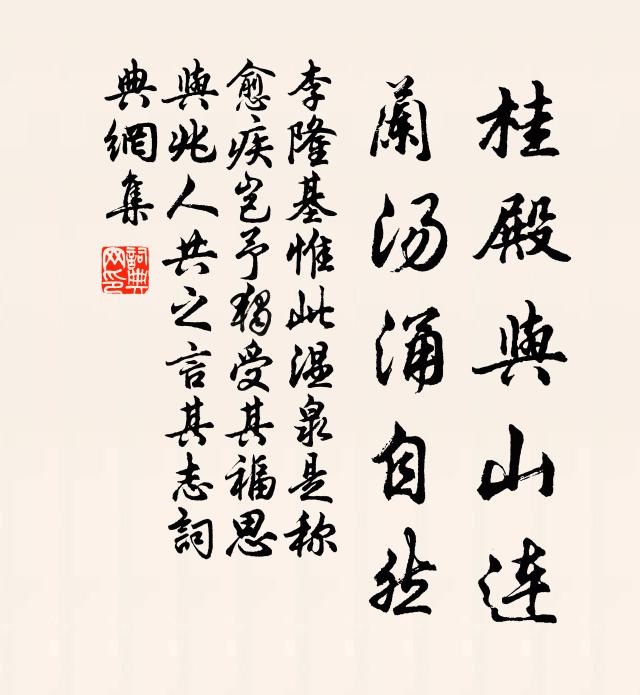 桂殿與山連
蘭湯涌自然
李隆基惟此温泉是称
愈疾岂予獨受其福思
與兆人共之言其志詞
典網集
詞典
网印